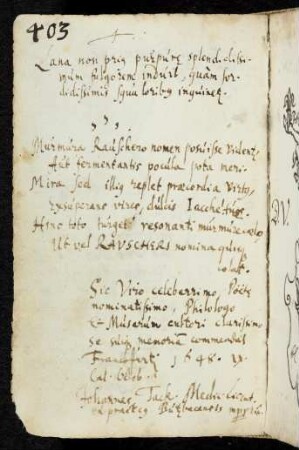 403
Lana non priùs purpuræ splendidissi-
mum fulgorem induit, quam sor-
didissimis squaloribus inquinet.
Murmura Rauschero nomen posuisse videntur
Aut fermentantis pocula pota meri
Mira sed illius replet præcordia virtus,
Exsuperans vires, dulcis Iacche, tuas.
Hinc toto turget resonanti murmure
Ut vel RAUSCHERI nomina quisque
volat.
Sic Viro celeberrimo, Poetæ
nominatissimo, Philologo
et Musarum cultori clarissimo
se suamque memoriam commendat
Francofurti 1648. 11
Cal. Octob.
Johannes Tack. Medic. Licent.
et practicus Butzbacensis mppria.